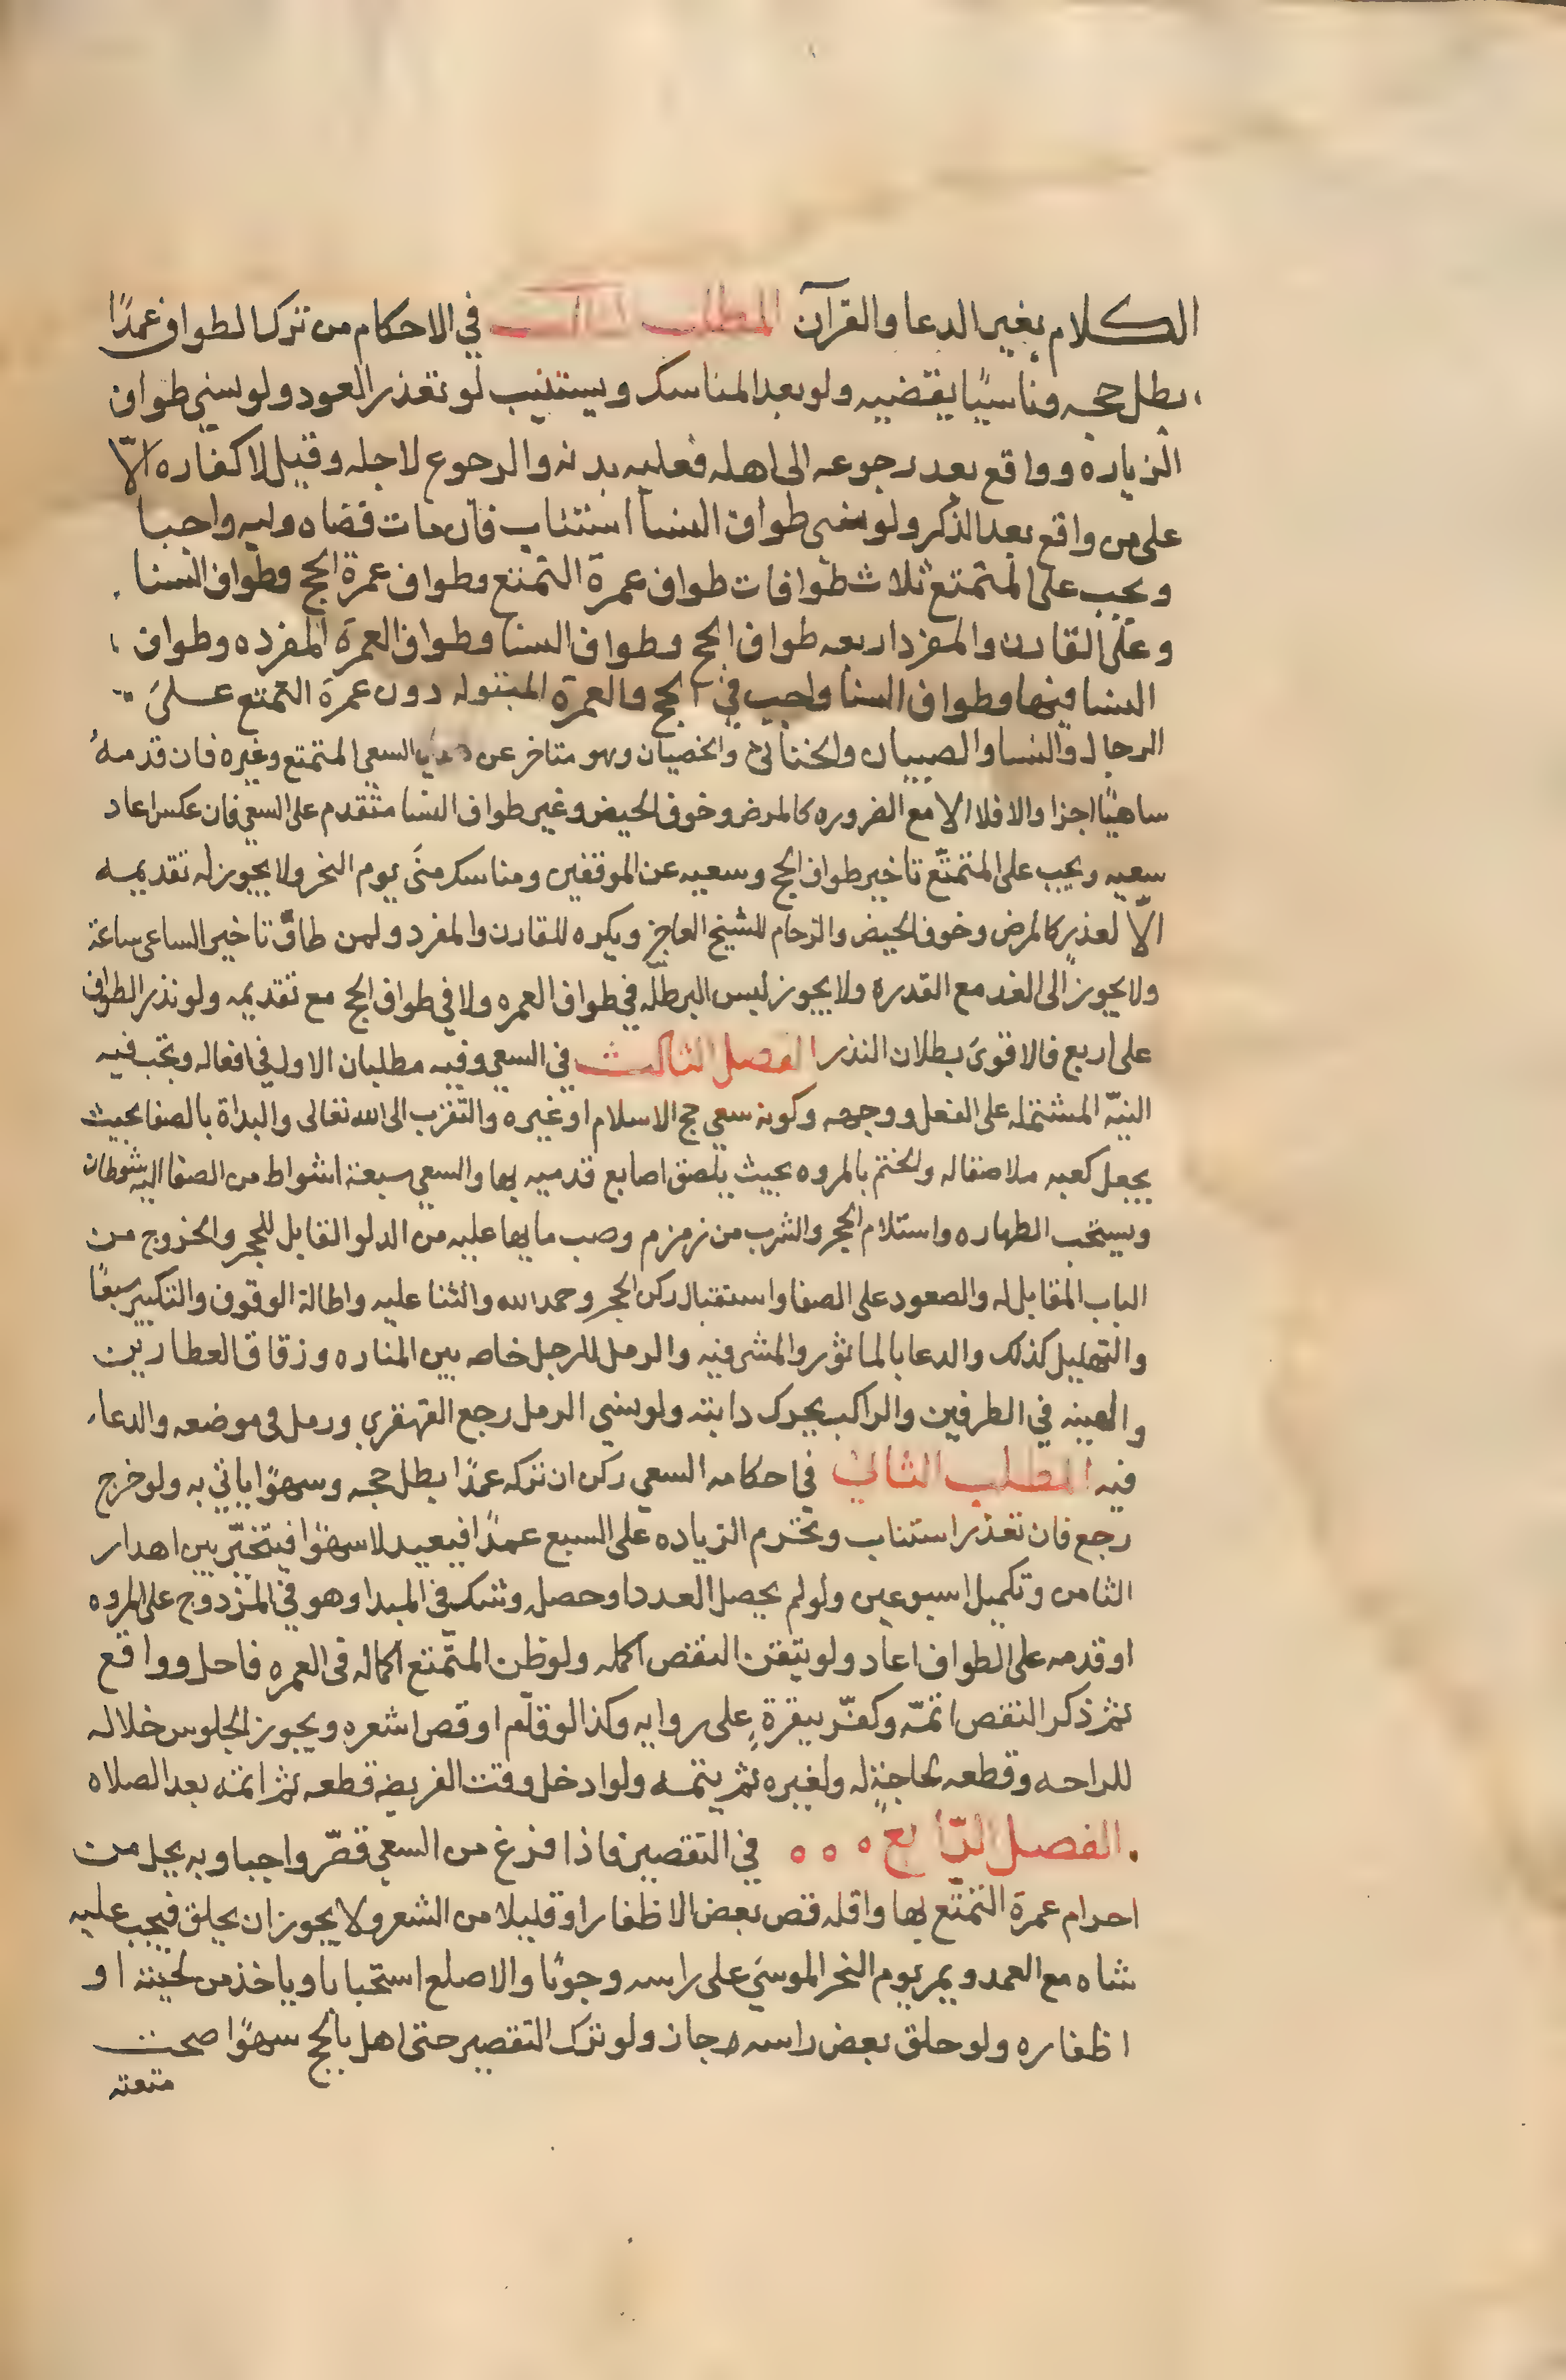 الكلام بغير الدعا والقرآن المطلب الثالث في الاحكام من ترك الطواف عمدًا
بطل حجه وناسيًا يقضيه ولو بعد المناسك ويستنيب لو تعذر العود ولو نسي طواف
الزياره وواقع بعد رجوعه الى اهله فعليه بدنه والرجوع لاجله وقيل لا كفاره الّا
على من واقع بعد الذكر ولو نسى طواف النسا استناب فان مات قضاه وليه واجبا
ويجب على المتمتع ثلاث طوافات طواف عمرة التمتع وطواف عمرة الحج وطواف النسا
وعلى القارن والمفرد اربعه طواف الحج وطواف النسا وطواف العمرة المفرده وطواف
النسا فيها وطواف النسا واجب في الحج والعمرة المبتوله دون عمرة التمتع على
الرجال والنسا والصبيان والخناثى والخصيان وهو متاخر عن السعى المتمتع وغيره فان قدمهُ
ساهيًا اجزا والا فلا الا مع الضروره كالمرض وخوف الحيض وغير طواف النسا متقدم على السعي فان عكس اعاد
سعيه ويجب على المتمتع تاخير طواف الحج وسعيه عن الموقفين ومناسك منَى يوم النحر ولا يجوز له تقديمه
الّا لعذرٍ كالمرض وخوف الحيض والزحام للشيخ العاجز ويكره للقارن والمفرد ولمن طاف تاخير الساعى ساعة
ولا يجوز الى الغد مع القدرة ولا يجوز لبس البرطلّه في طواف العمره ولا في طواف الحج مع تقديمه ولو نذر الطواف
على اربع فالاقوىَ بطلان النذر الفصل الثالث في السعي وفيه مطلبان الاول في افعاله وتجب فيه
النيّه المشتمله على الفعل ووجهه وكونه سعي حج الاسلام او غيره والتقرب الى الله تعالى والبداة بالصفا بحيث
يجعل كعبه ملاصقا له والختم بالمروه بحيث يلصق اصابع قدميه بها والسعي سبعة اشواط من الصفا اليه شوطان
ويستحب الطهاره واستلام الحجر والشرب من زمزم وصب مايها عليه من الدلو القابل للحجر والخروج من
الباب المقابل له والصعود على الصفا واستقبال ركن الحجر وحمد الله والثنا عليه واطالة الوقوف والتكبير سبعًا
والتهليل كذلك والدعا بالماثور والمشى فيه والرمل للرجل خاصه بين المناره وزقاق العطارين
والهينه في الطرفين والراكب يحرك دابته ولو نسي الرمل رجع القهقري ورمل فى موضعه والدعا
فيه المطلب الثاني في احكامه السعي ركن ان تركه عمدًا بطل حجه وسهوًا ياتي به ولو خرج
رجع فان تعذر استناب وتحرم الزياده على السبع عمدًا فيعيد لا سهوًا فيتخيّر بين اهدار
الثامن وتكميل اسبوعين ولو لم يحصل العدد او حصل وشك فى المبدا وهو في المزدوج على المروه
او قدمه على الطواف اعاد ولو تيقن النقص اكمله ولو ظن المتمتع اكماله فى العمره فاحل وواقع
ثم ذكر النقص اتمّه وكفّر ببقرةٍ على روايه وكذا لو قلّم او قص شعره ويجوز الجلوس خلاله
للراحه وقطعه لحاجةٍ له ولغيره ثم يتمه ولو ادخل وقت الفريضه قطعه ثم اتمه بعد الصلاه
الفصل الرّابع في التقصير فاذا فرغ من السعي قصّر واجبا وبه يحل من
احرام عمرة التمتع بها واقله قص بعض الاظفار او قليلا من الشعر ولا يجوز ان يحلق فيجب عليه
شاه مع العمد ويمر يوم النحر الموسىَ على راسه وجوبًا والاصلع استحبابا وياخذ من لحيته او
اظفاره ولو حلق بعض راسه جاز ولو ترك التقصير حتى اهل بالحج سهوًا صحت
متعته